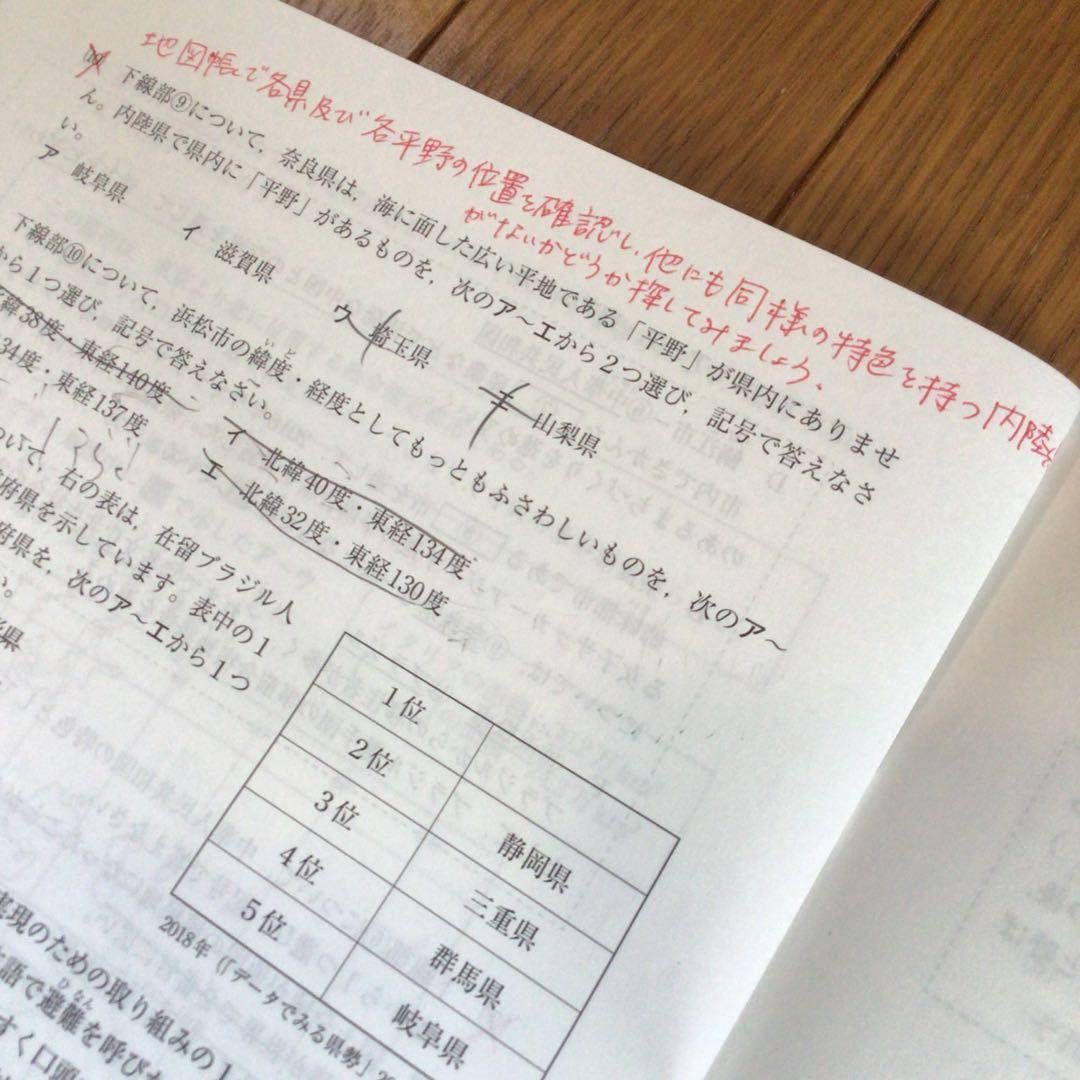 地図帳で各県及び各平野の位置を確認し、他にも同様の特色を持つ内陸
がないかどうか探してみましょう。
下線部⑨について，奈良県は，海に面した広い平地である「平野」が県内にありませ
ん。内陸県で県内に「平野」があるものを，次のア～エから２つ選び，記号で答えなさ
い。
ア 岐阜県 イ 滋賀県 ウ 埼玉県 エ 山梨県
下線部⑩について，浜松市の緯度・経度としてもっともふさわしいものを，次のア～
から１つ選び，記号で答えなさい。
いど
緯38度・東経140度 イ 北緯40度・東経134度
34度・東経137度 エ 北緯32度・東経130度
ついて，右の表は，在留ブラジル人
府県を示しています。表中の１
府県を，次のア～エから１つ
い。
県
1位
2位 静岡県
3位 三重県
4位 群馬県
5位 岐阜県
2018年（『データでみる県勢』20
実現のための取り組みの１
語で避難を呼びか
ひなん
すく口頭